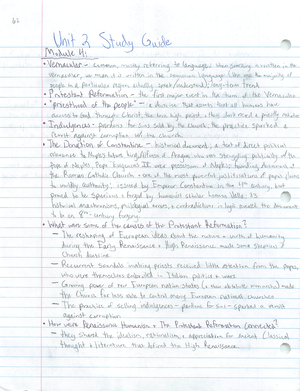 Unit 2 Study Guide
Module 4:
• Vernacular - common, mostly referring to language; when something is written in the
vernacular, we mean it is written in the common language (the one the majority of
people in a particular region actually speak/understand); long-term trend
• Protestant Reformation - the first major event in the
• "priesthood of the people" - a doctrine that asserts that all humans have
access to God through Christ, the true high priest, thus don't need a priestly mediator
• Indulgences - pardons for sins sold by the church; the practice sparked a
revolt against corruption in the church
• The Donation of Constantine - historical document; a text of direct political
relevance to
the Roman Catholic Church - one of the most powerful justifications of papal claims
to worldly authority, issued by Emperor Constantine in the 4th century, but
proved to be spurious & forged by humanist scholar Lorenzo Valla; its
historical anachronism, philological errors, & contradictions in logic
to be an 8th-century forgery
• What were some of the causes of the Protestant Reformation?
— The reshaping of European ideas about the nature & limits of humanity
during the Early Renaissance & High Renaissance made some skeptical of
Church doctrine
— Recurrent scandals involving priests received little attention from the popes,
who were themselves embroiled in Italian politics & wars
— Growing power of new European nation-states (& new absolutist monarchs) made
the Church far less able to control many European national churches
— The practice of selling indulgences - pardons for sins - sparked a revolt
against corruption
• How were Renaissance Humanism & The Protestant Reformation connected?
— they shared the idealism, rationalism, & appreciation for ancient Classical
thought & literature that defined the High Renaissance